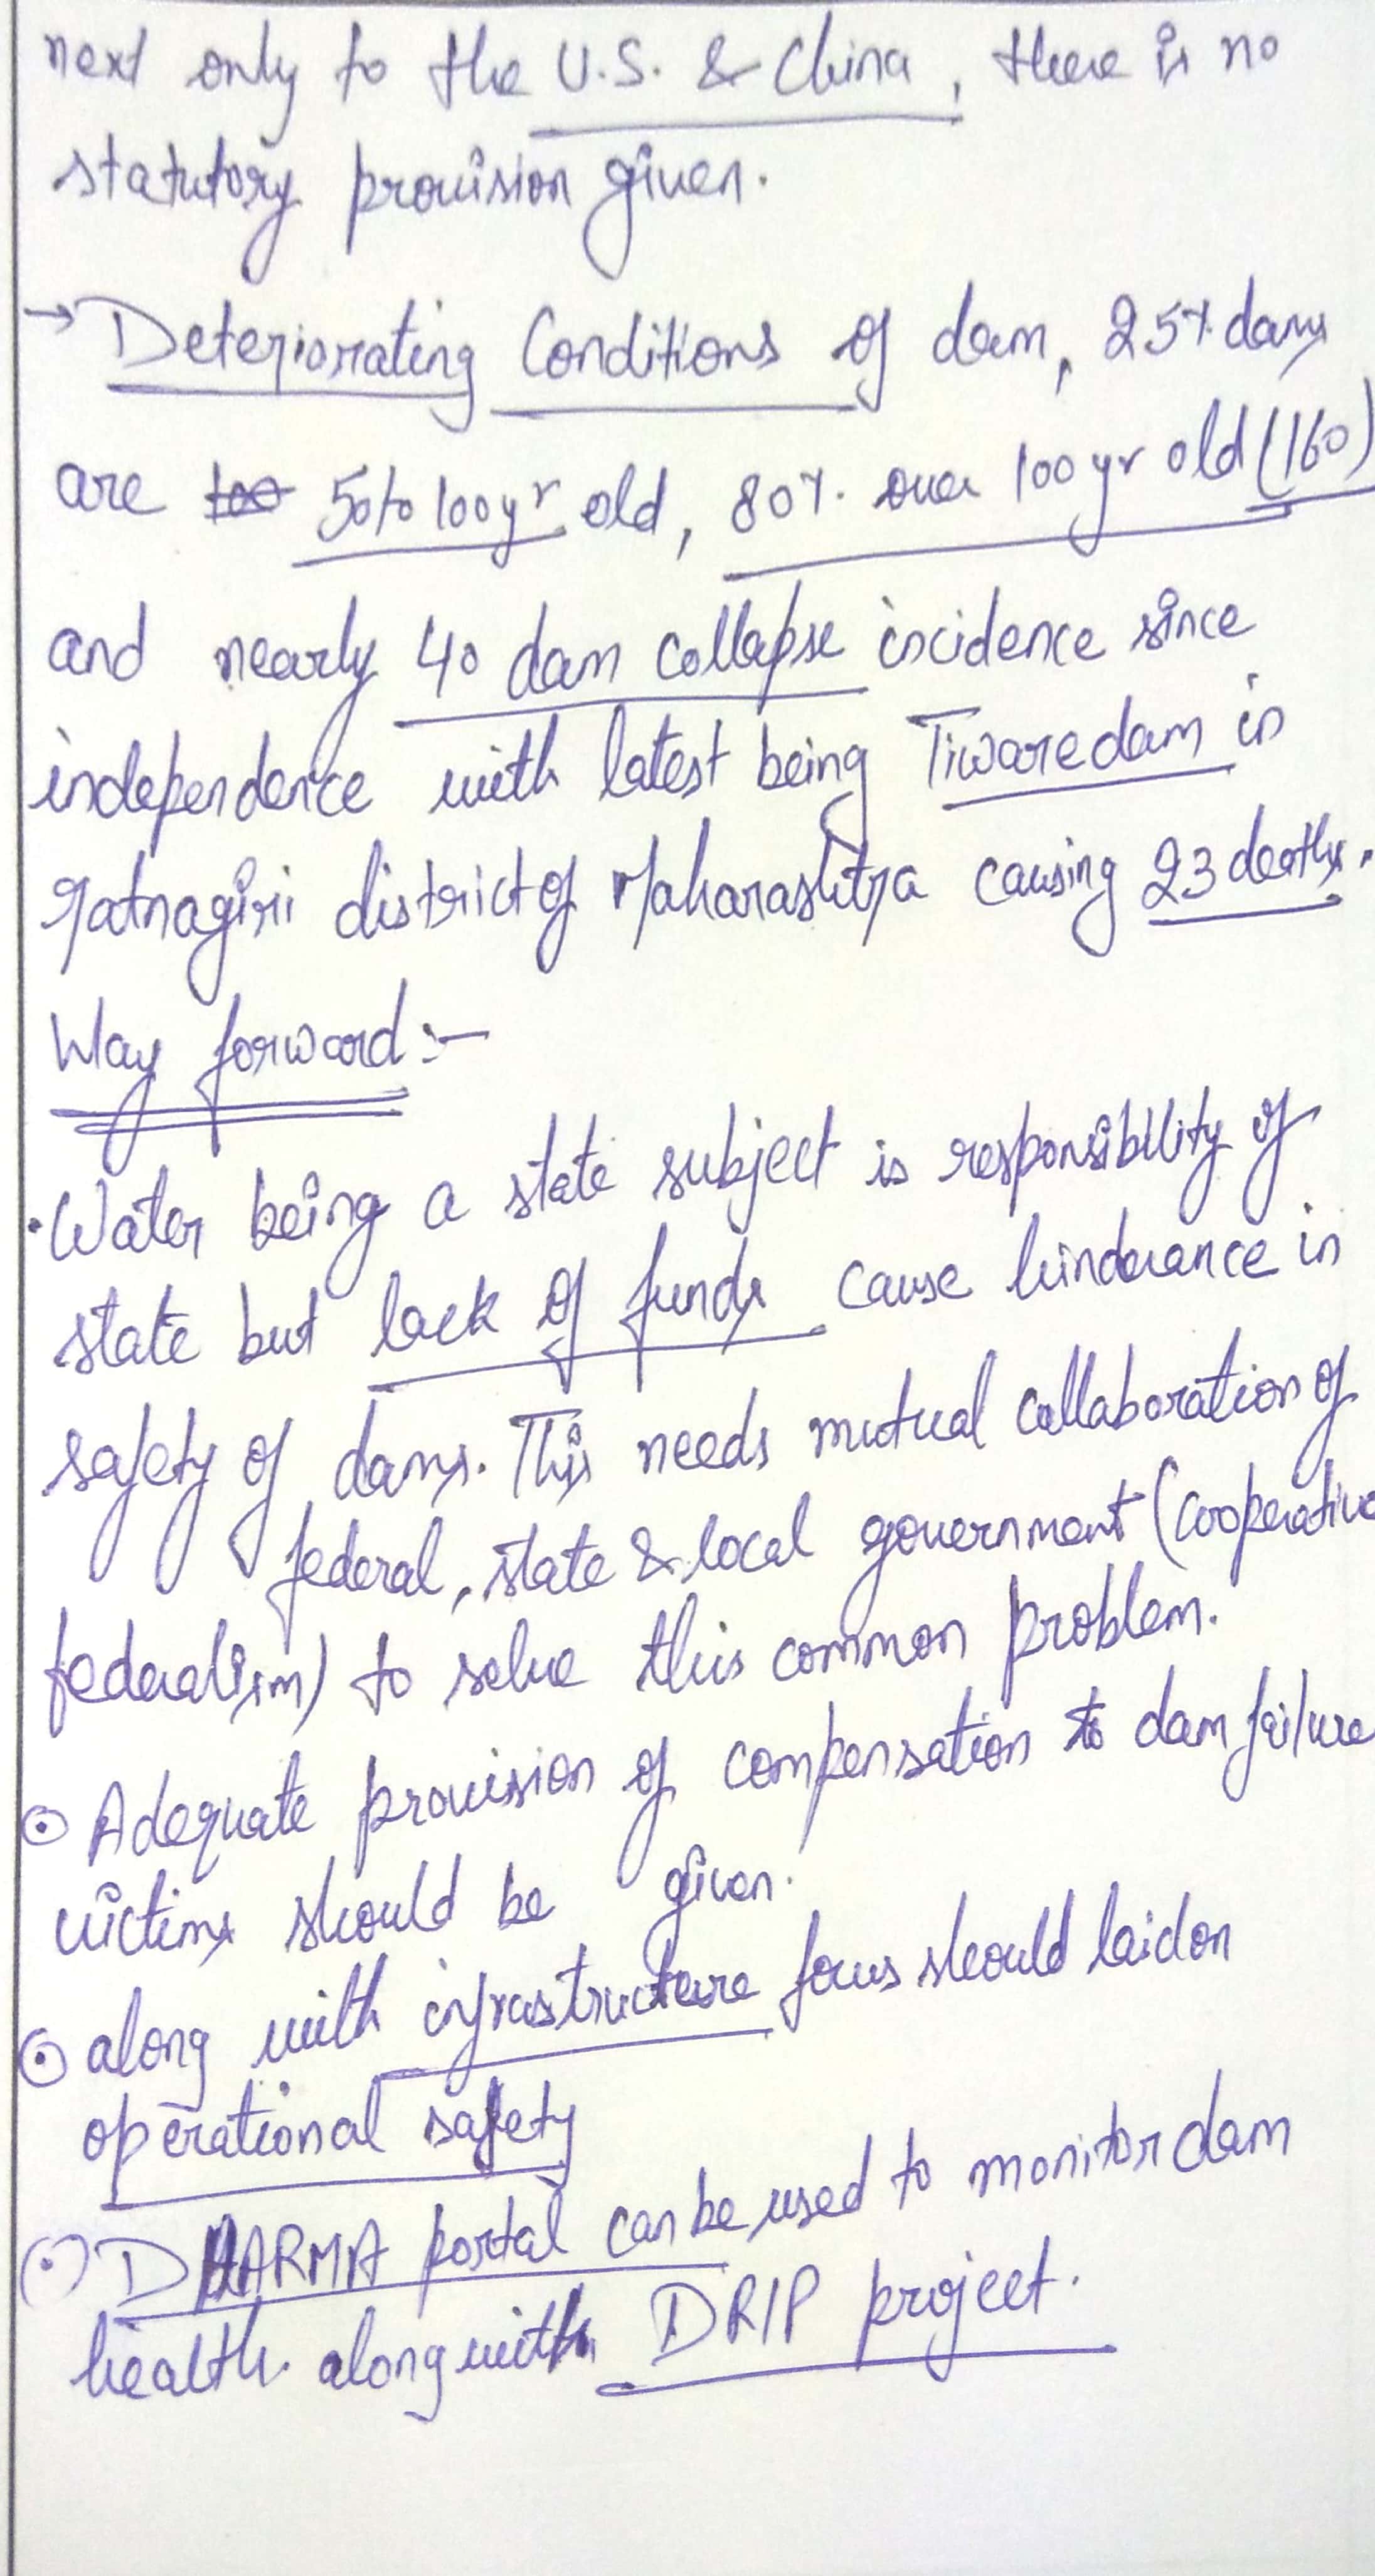 next only to the U.S. & China, there is no
statutory provision given.
→ Deteriorating Conditions of dam, 25% dams
are too 50 to 100yr old, 80% over 100 yr old (160)
and nearly 40 dam collapse incidence since
independence with latest being Tiware dam in
ratnagiri district of Maharashtra causing 23 deaths.
Way forward :-
• Water being a state subject is responsibility of
state but lack of funds cause hinderance in
safety of dams. This needs mutual collaboration of
federal, state & local government (cooperative
federalism) to solve this common problem.
⊙ Adequate provision of compensation to dam failure
victims should be given.
⊙ along with infrastructure focus should laid on
operational safety
⊙ DHARMA portal can be used to monitor dam
health along with DRIP project.